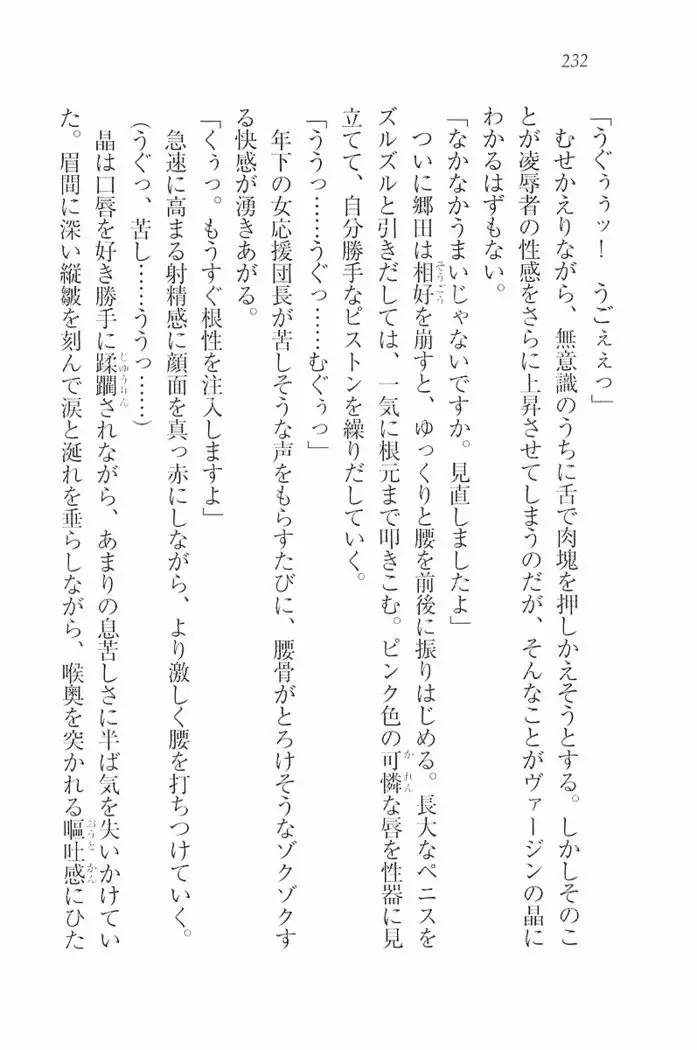 232
「うぐぅぅッ！　うごぇぇっ」
　むせかえりながら、無意識のうちに舌で肉塊を押しかえそうとする。しかしそのこ
とが凌辱者の性感をさらに上昇させてしまうのだが、そんなことがヴァージンの晶に
わかるはずもない。
「なかなかうまいじゃないですか。見直しましたよ」
　ついに郷田は相好を崩すと、ゆっくりと腰を前後に振りはじめる。長大なペニスを
ズルズルと引きだしては、一気に根元まで叩きこむ。ピンク色の可憐な唇を性器に見
立てて、自分勝手なピストンを繰りだしていく。
「ううっ……うぐっ……むぐぅっ」
　年下の女応援団長が苦しそうな声をもらすたびに、腰骨がとろけそうなゾクゾクす
る快感が湧きあがる。
「くぅっ。もうすぐ根性を注入しますよ」
　急速に高まる射精感に顔面を真っ赤にしながら、より激しく腰を打ちつけていく。
（うぐっ、苦し……ううっ……）
　晶は口唇を好き勝手に蹂躙されながら、あまりの息苦しさに半ば気を失いかけてい
た。眉間に深い縦皺を刻んで涙と涎れを垂らしながら、喉奥を突かれる嘔吐感にひた